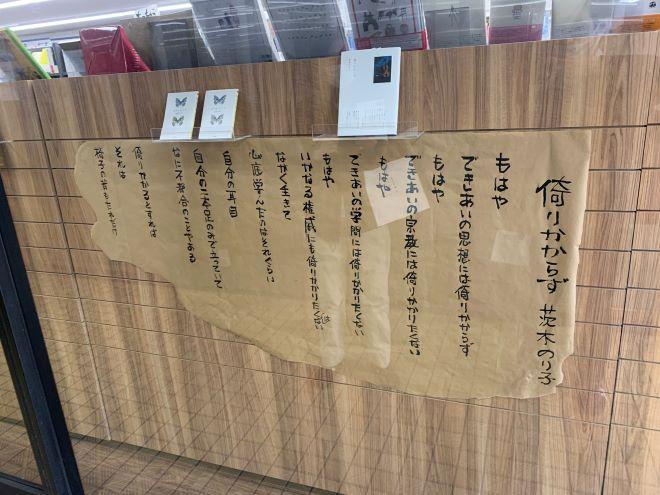 倚りかからず 茨木のり子
もはや
できあいの思想には倚りかからず
もはや
できあいの宗教には倚りかかりたくない
もはや
できあいの学問には倚りかかりたくない
もはや
いかなる権威にも倚りかかりたくはない
ながく生きて
心底学んだのはそれぐらい
自分の耳目
自分の二本足のみで立っていて
なに不都合のことやある
倚りかかるとすれば
それは
椅子の背もたれだけ